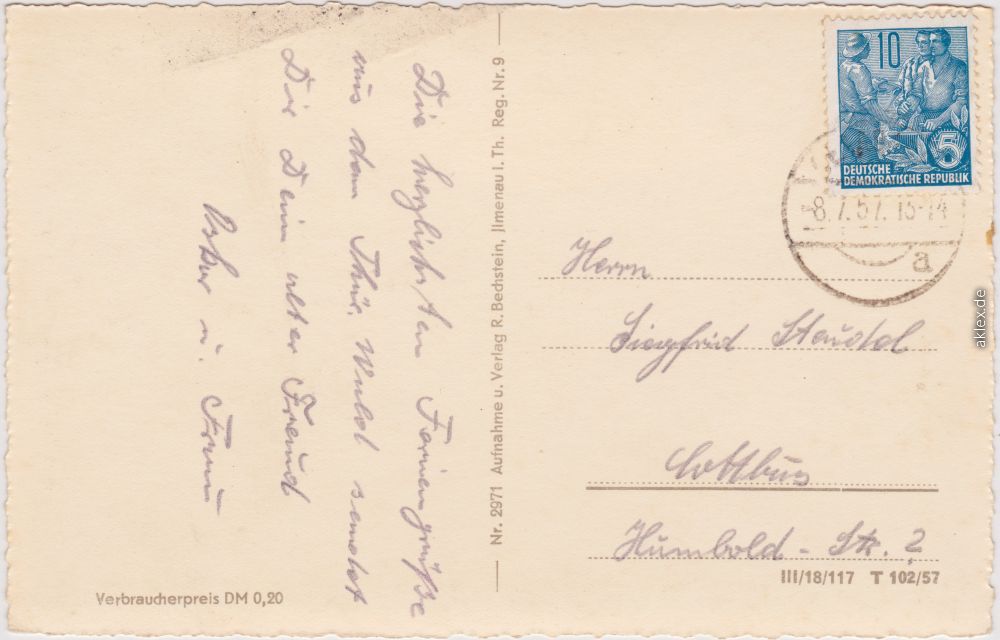 Die herzlichsten Feriengrüße
aus dem Thür. Wald sendet
Dir Dein alter Freund
Oskar u. Frau
Nr. 2971 Aufnahme u. Verlag R. Bechstein, Jlmenau i. Th. Reg. Nr. 9
10
5
DEUTSCHE
DEMOKRATISCHE REPUBLIK
-8.7.57. 13-14
a
Herrn
Siegfried Staudal
Cottbus
Humbold-Str. 2
III/18/117 T 102/57
Verbraucherpreis DM 0,20
aklex.de